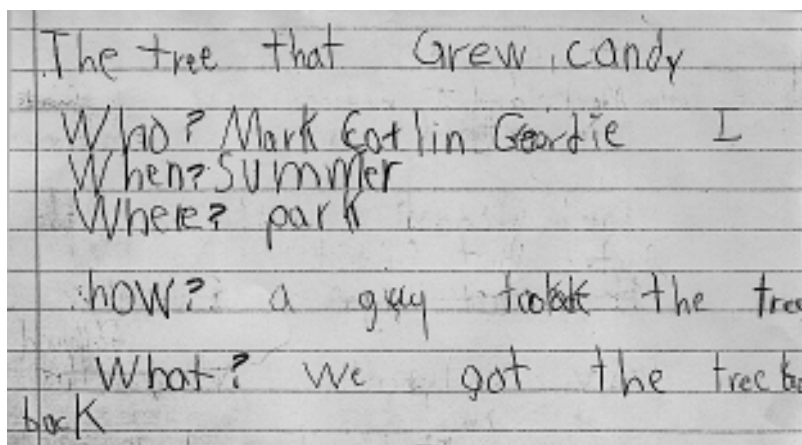 The tree that Grew candy
Who? Mark Eatlin Geordie I
When? Summer
Where? park
how? a guy took the tree
What? We got the tree
back